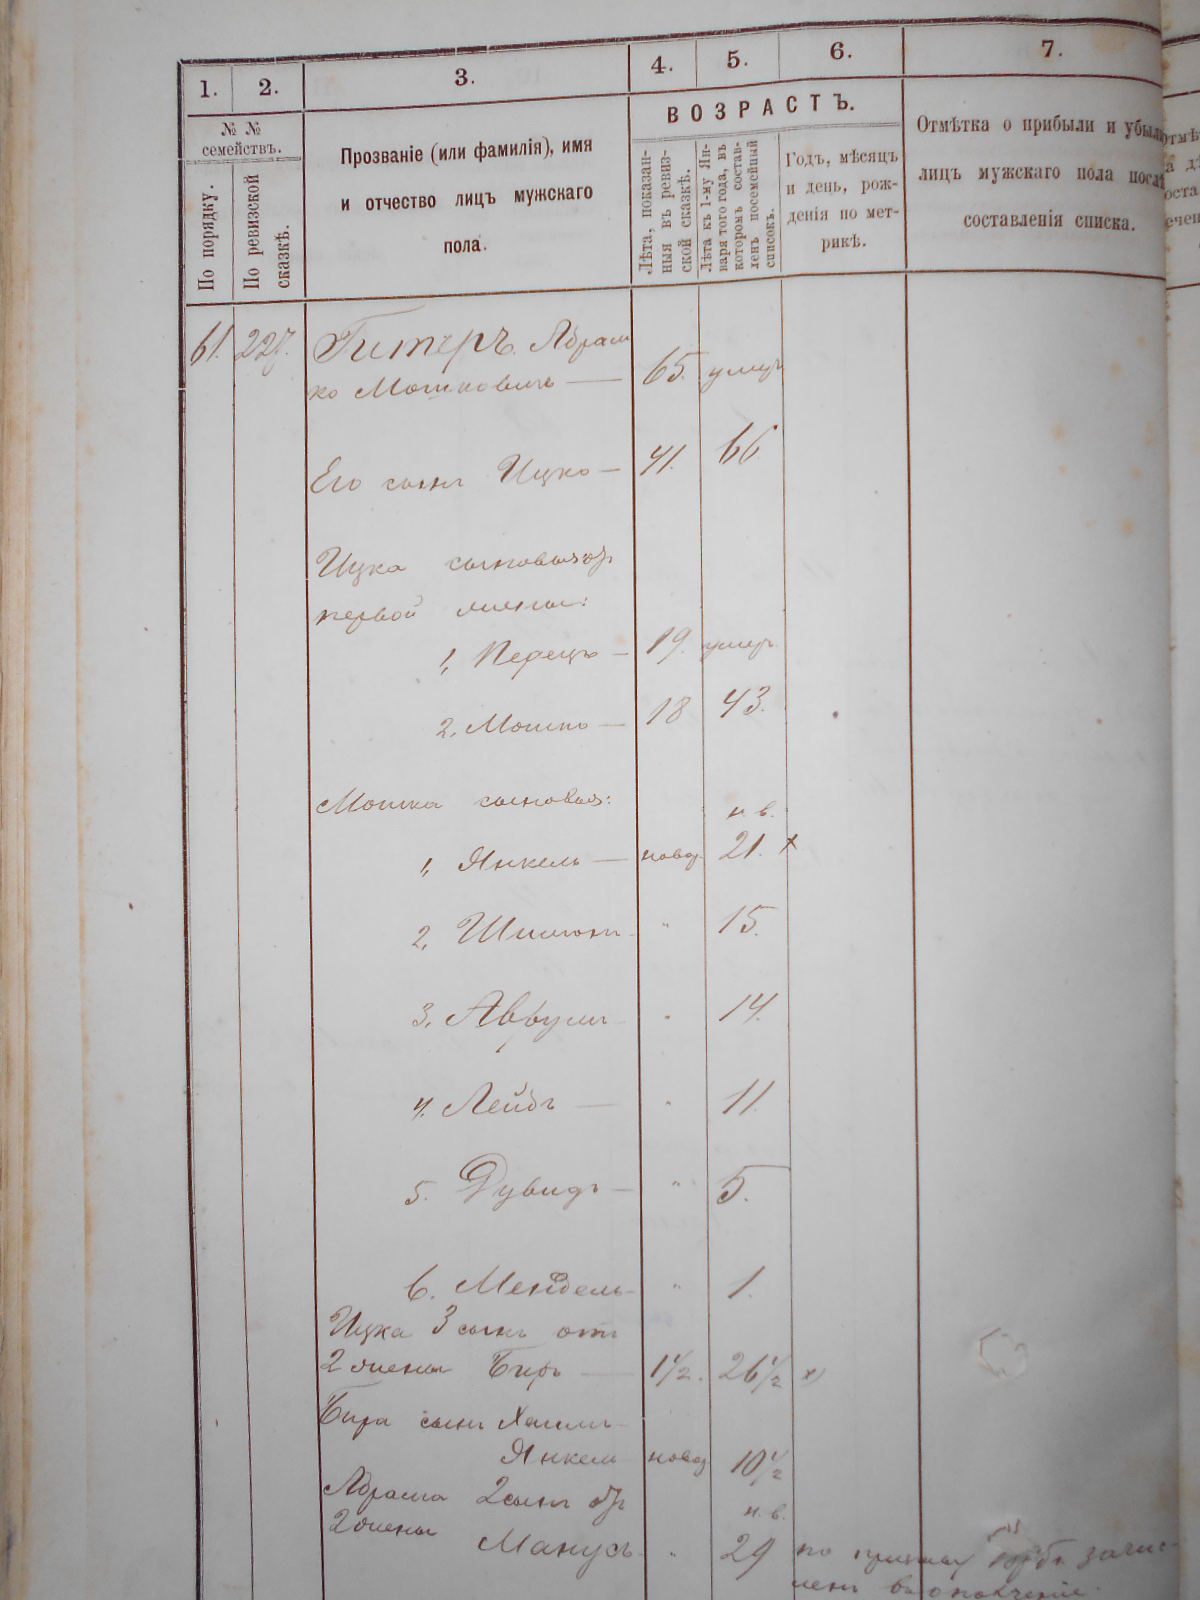 1.
2.
3.
4.
5.
6.
7.
№ №
семействъ.
По порядку.
По ревизской
сказкѣ.
Прозваніе (или фамилія), имя
и отчество лицъ мужскаго
пола.
ВОЗРАСТЪ.
Лѣта, показан-
ныя въ ревиз-
ской сказкѣ.
Лѣта къ 1-му Ян-
варя того года, въ
которомъ состав-
ленъ посемейный
списокъ.
Годъ, мѣсяцъ
и день, рож-
денія по мет-
рикѣ.
Отмѣтка о прибыли и убыли
лицъ мужскаго пола послѣ
составленія списка.
61. 227. Гитеръ. Абрам
ко Мошковичъ — 65. умеръ
Его сынъ Ицко — 41. 66
Ицка сыновья отъ
первой жены:
1, Перецъ — 19. умеръ.
2. Мошко — 18 43.
Мошка сыновья: н. в.
1, Янкель — новор. 21. х
2, Шимонъ - " 15.
3, Аврумъ - " 14.
4. Лейбъ — " 11.
5. Дувидъ — " 5.
6. Мендель - " 1.
Ицка 3 сынъ отъ
2 жены Биръ — 1½. 26½ х)
Бира сынъ Хаимъ-
Янкель новор 10½
Абрама 2 сынъ отъ н. в.
2 жены
Манусъ. " 29 по зачис-
ленъ въ ополченіе.